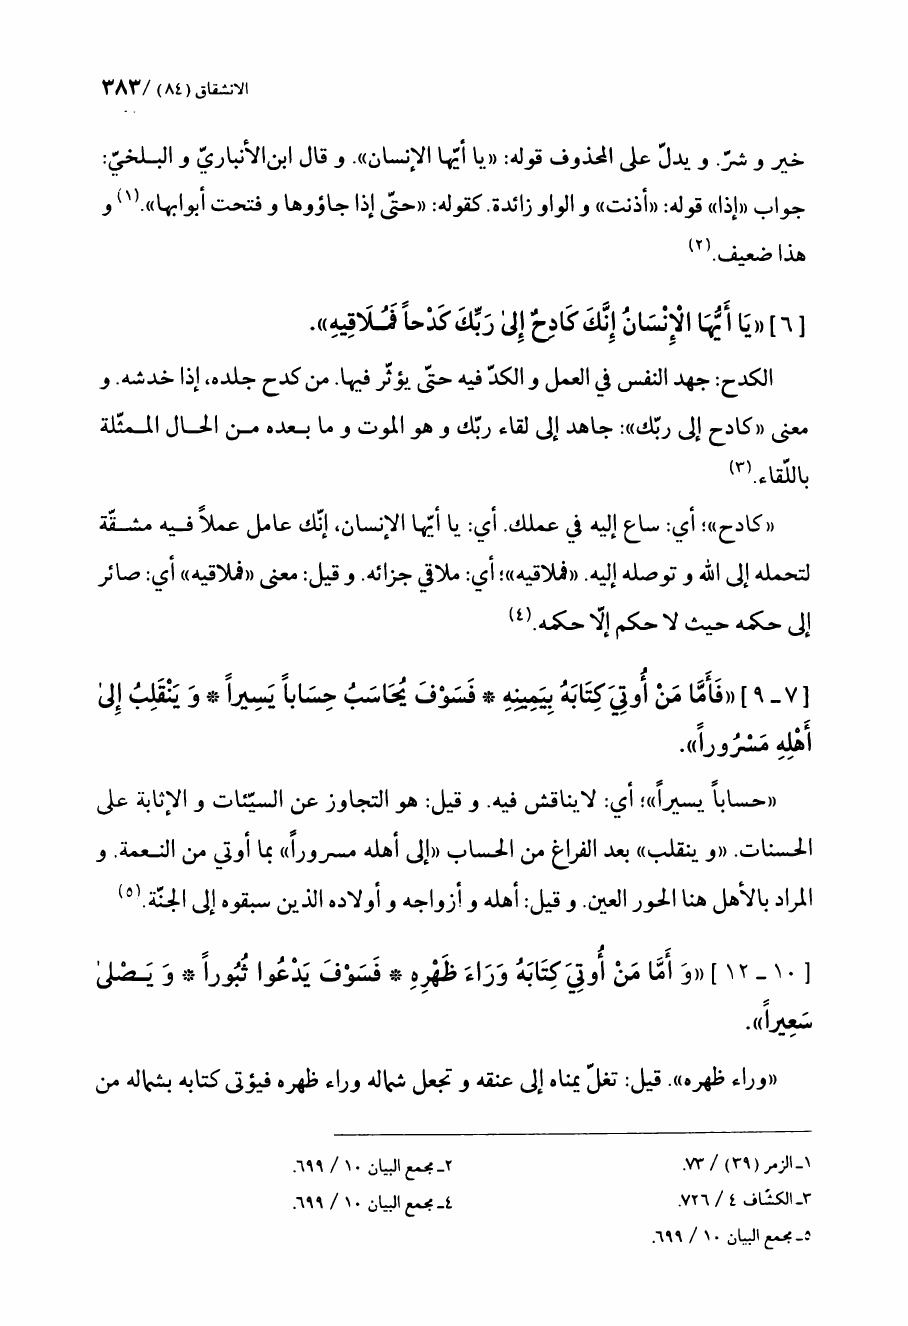 الانشقاق (٨٤) / ٣٨٣
خير و شرّ. و يدلّ على المحذوف قوله: «يا أيّها الإنسان». و قال ابن‌الأنباريّ و البـلخيّ:
جواب «إذا» قوله: «أذنت» و الواو زائدة. كقوله: «حتّى إذا جاؤوها و فتحت أبوابها».(١) و
هذا ضعيف.(٢)
[٦] «يَا أَيُّهَا الْإِنْسَانُ إِنَّكَ كَادِحٌ إِلىٰ رَبِّكَ كَدْحاً فَمُـلَاقِيهِ».
الكدح: جهد النفس في العمل و الكدّ فيه حتّى يؤثّر فيها. من كدح جلده، إذا خدشه. و
معنى «كادح إلى ربّك»: جاهد إلى لقاء ربّك و هو الموت و ما بـعده مـن الحـال المـمثّلة
باللّقاء.(٣)
«كادح»؛ أي: ساع إليه في عملك. أي: يا أيّها الإنسان، إنّك عامل عملاً فـيه مشـقّة
لتحمله إلى الله و توصله إليه. «فملاقيه»؛ أي: ملاقي جزائه. و قيل: معنى «فملاقيه» أي: صائر
إلى حكمه حيث لا حكم إلّا حكمه.(٤)
[٧ـ٩] «فَأَمَّا مَنْ أُوتِيَ كِتَابَهُ بِيَمِينِهِ * فَسَوْفَ يُحَاسَبُ حِسَاباً يَسِيراً * وَ يَنْقَلِبُ إِلىٰ
أَهْلِهِ مَسْرُوراً».
«حساباً يسيراً»؛ أي: لايناقش فيه. و قيل: هو التجاوز عن السيّئات و الإثابة على
الحسنات. «و ينقلب» بعد الفراغ من الحساب «إلى أهله مسروراً» بما أوتي من النـعمة. و
المراد بالأهل هنا الحور العين. و قيل: أهله و أزواجه و أولاده الذين سبقوه إلى الجنّة.(٥)
[١٠ـ١٢] «وَ أَمَّا مَنْ أُوتِيَ كِتَابَهُ وَرَاءَ ظَهْرِهِ * فَسَوْفَ يَدْعُوا ثُبُوراً * وَ يَـصْلىٰ
سَعِيراً».
«وراء ظهره». قيل: تغلّ يمناه إلى عنقه و تجعل شماله وراء ظهره فيؤتى كتابه بشماله من
١ـ الزمر (٣٩) / ٧٣.
٢ـ مجمع البيان ١٠ / ٦٩٩.
٣ـ الكشّاف ٤ / ٧٢٦.
٤ـ مجمع البيان ١٠ / ٦٩٩.
٥ـ مجمع البيان ١٠ / ٦٩٩.